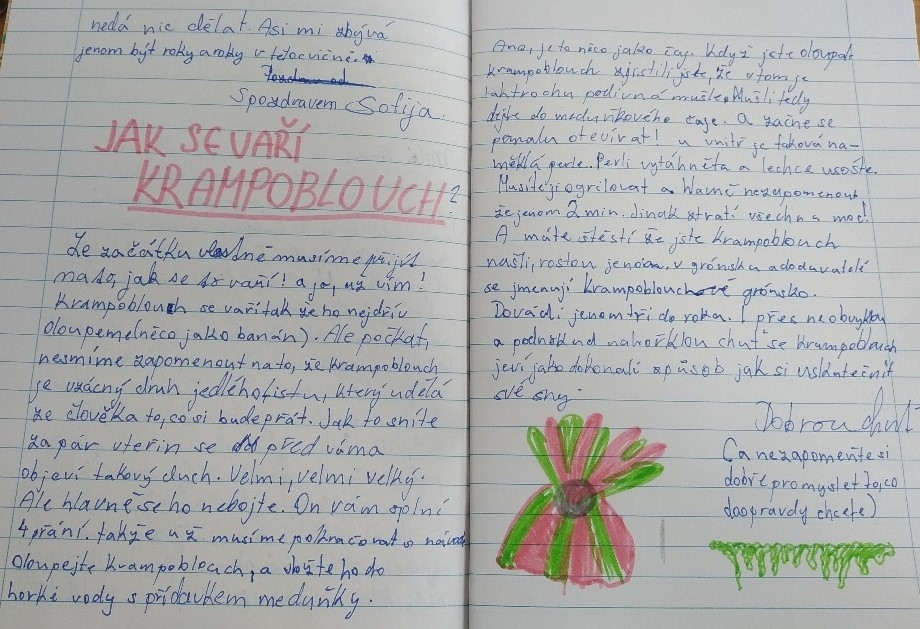 nedá nic dělat. Asi mi zbývá
jenom být roky a roky v tělocvičně.
Pozdrav od
S pozdravem Sofija.
JAK SE VAŘÍ
KRAMPOBLOUCH?
Ze začátku vlastně musíme přijít
na to, jak se to vaří! a jo, už vím!
Krampoblouch se vaří tak že ho nejdřív
oloupeme (něco jako banán). Ale počkat,
nesmíme zapomenout na to, že krampoblouch
je vzácný druh jedlého listu, který udělá
ze člověka to, co si bude přát. Jak to sníte
za pár vteřin se před váma
objeví takový duch. Velmi, velmi velký.
Ale hlavně se ho nebojte. On vám splní
4 přání. takže už musíme pokračovat s
oloupejte krampoblouch, a vložte ho do
horké vody s přídavkem meduňky.
Ano, je to něco jako čaj. Když jste oloupali
krampoblouch zjistili jste, že v tom je
taktrochu podivná mušle. Mušli tedy
dejte do meduňkového čaje. A začne se
pomalu otevírat! u vnitř je taková na-
měklá perle. Perli vytáhněta a lechce usošte.
Musíte ji ogrilovat a hlavně nezapomenout
že jenom 2 min. Jinak ztratí všechnu moc!
A máte štěstí že jste krampoblouch
našli, rostou jenom v grónsku a dodavatelé
se jmenují krampoblouchové grónsko.
Dováží jenom tři do roka. I přes neobvyklou
a podnikud nahořklou chuť se krampoblouch
jeví jako dokonalí způsob jak si uskutečnit
své sny.
Dobrou chuť
(a nezapomeňte si
dobře promyslet to, co
doopravdy chcete)